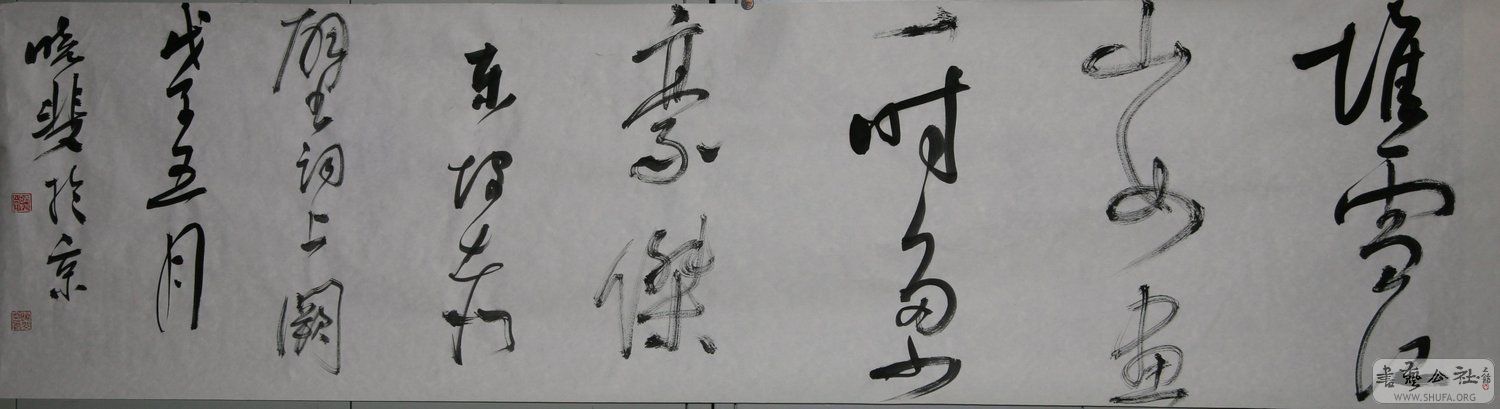 堆雪江
山如画
一时多少
豪傑
東坡赤
壁词上阕
戊子五月
晓斐於京
書藝公社
WWW.SHUFA.ORG